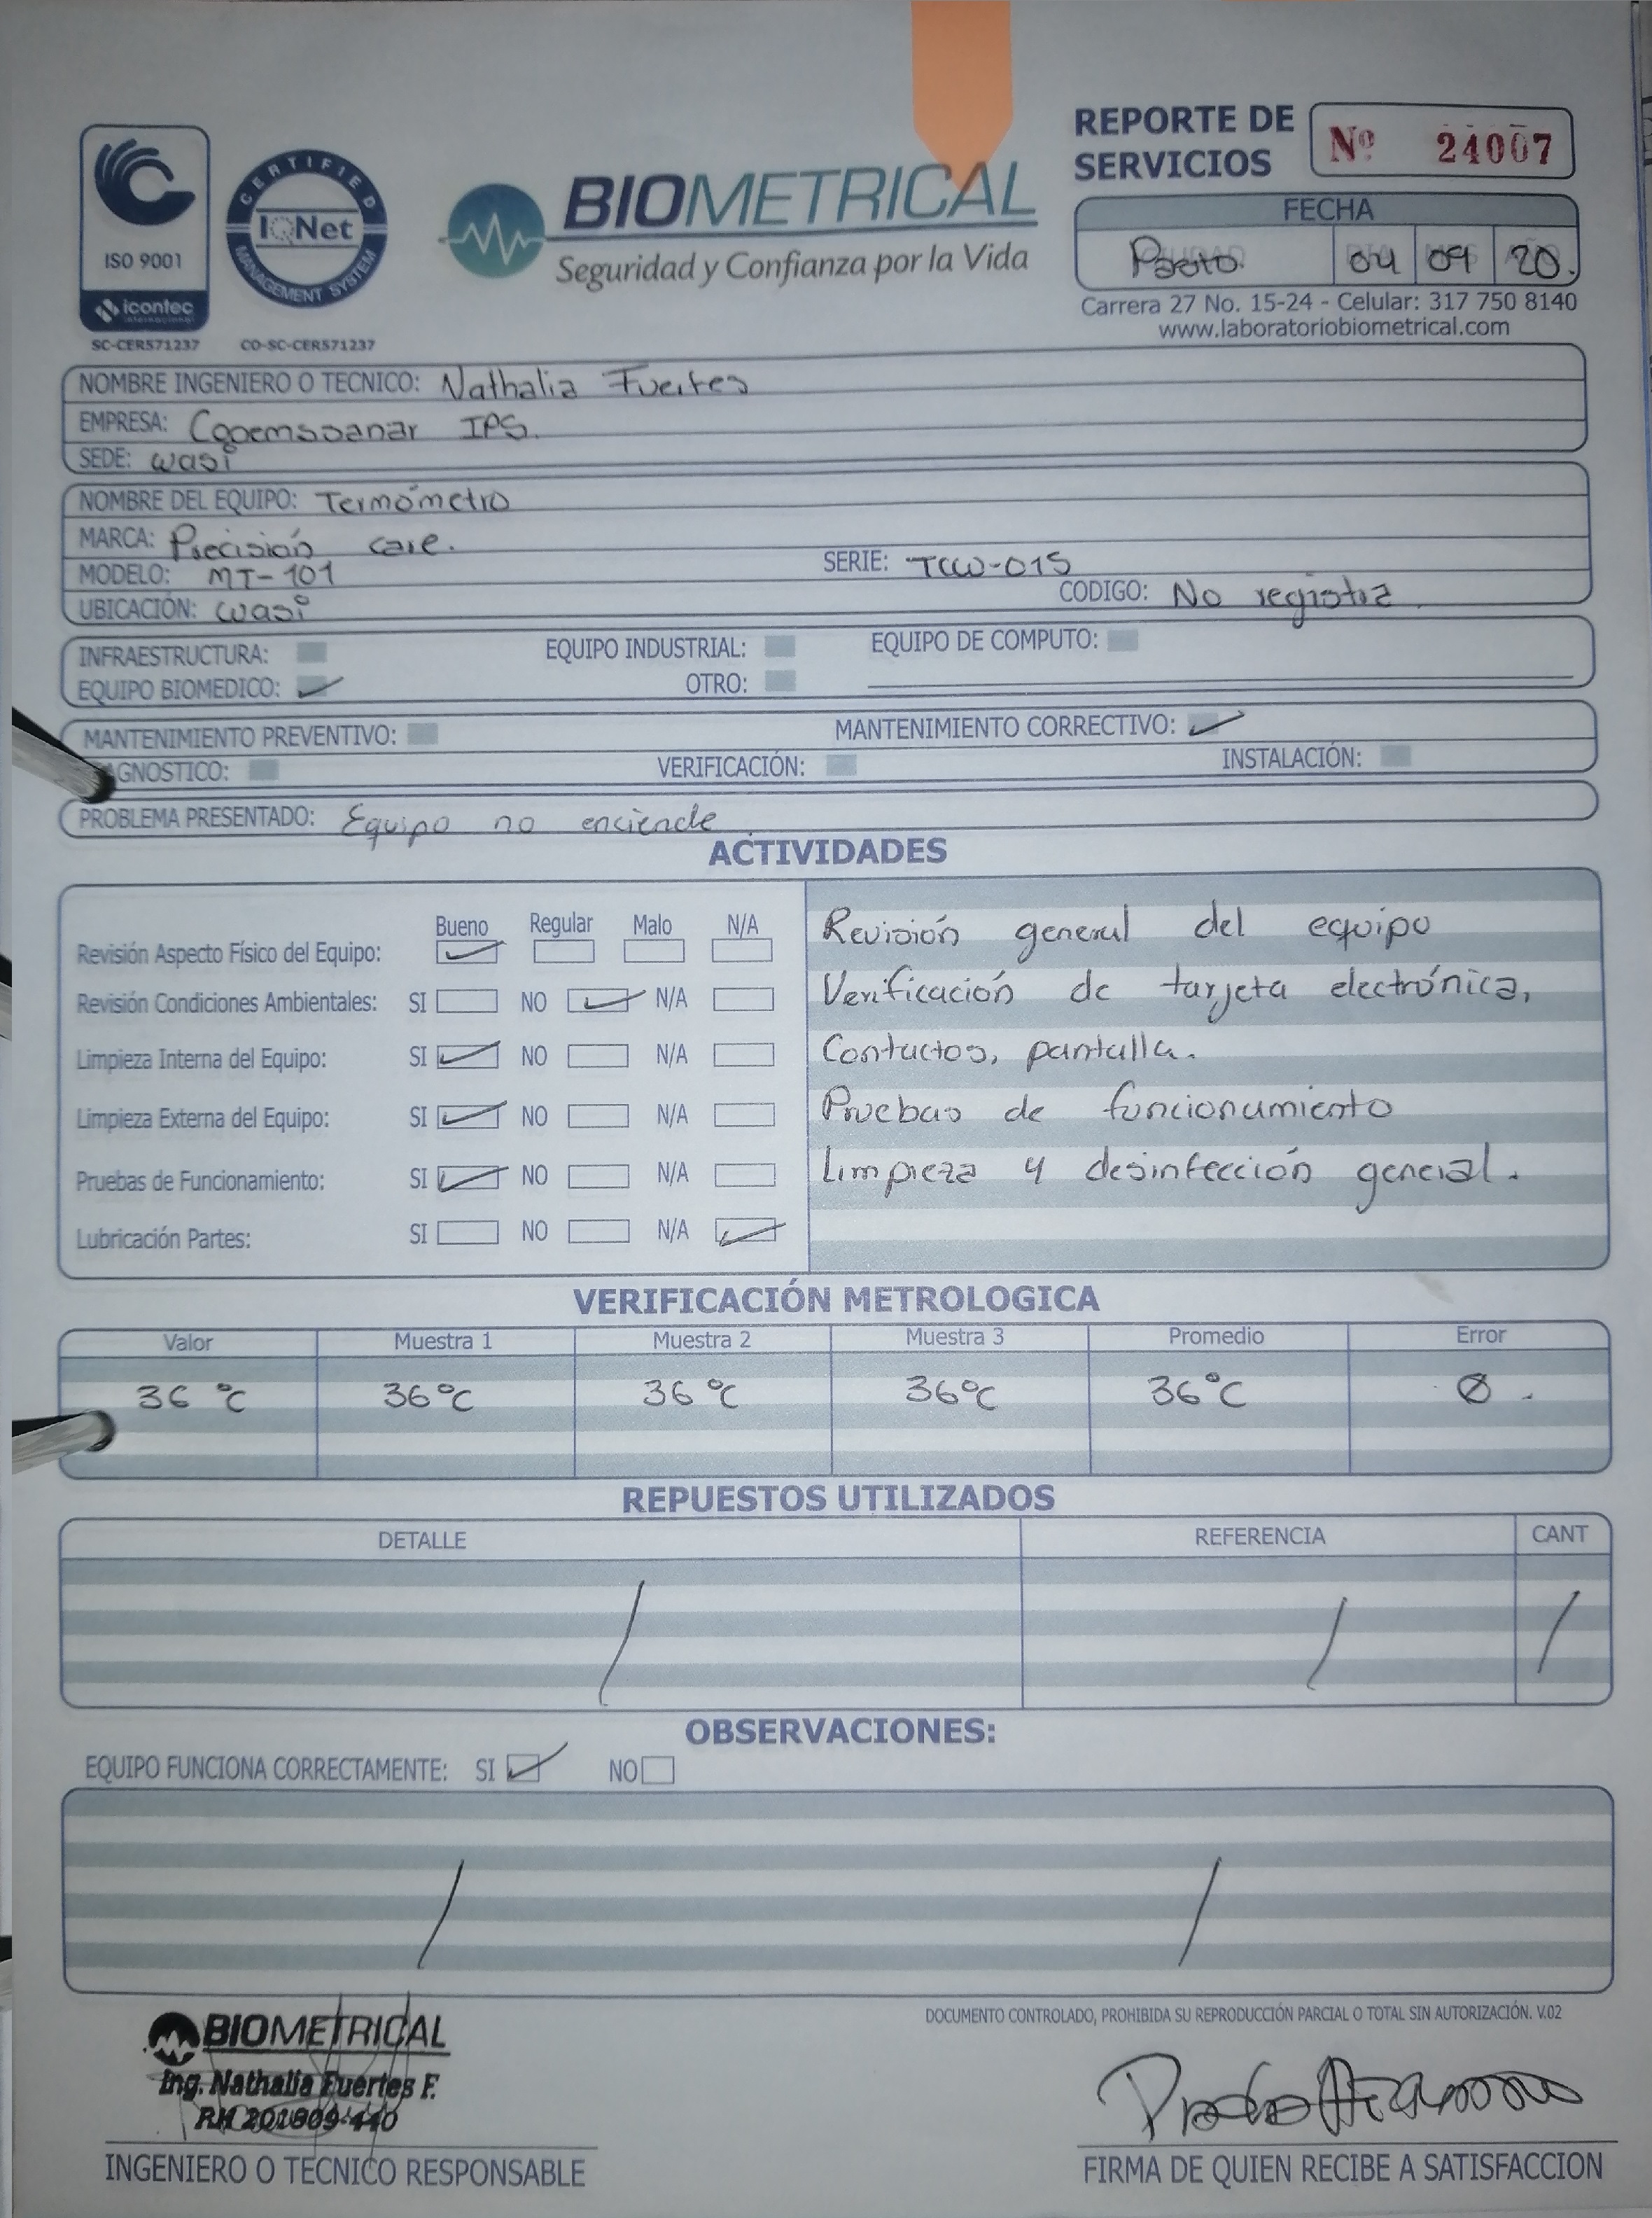 REPORTE DE
SERVICIOS
Nº 24007
ISO 9001
icontec
internacional
SC-CER571237
CERTIFIED
IQNet
MANAGEMENT SYSTEM
CO-SC-CER571237
BIOMETRICAL
Seguridad y Confianza por la Vida
FECHA
Pasto. 04 09 20.
Carrera 27 No. 15-24 - Celular: 317 750 8140
www.laboratoriobiometrical.com
NOMBRE INGENIERO O TECNICO: Nathalia Fuertes
EMPRESA: Coemssanar IPS.
SEDE: wasi
NOMBRE DEL EQUIPO: Termómetro
MARCA: Precisión care.
MODELO: MT-101 SERIE: TCW-015
UBICACIÓN: wasi CODIGO: No registra.
INFRAESTRUCTURA: EQUIPO INDUSTRIAL: EQUIPO DE COMPUTO:
EQUIPO BIOMEDICO: ✓ OTRO:
MANTENIMIENTO PREVENTIVO: MANTENIMIENTO CORRECTIVO: ✓
AGNOSTICO: VERIFICACIÓN: INSTALACIÓN:
PROBLEMA PRESENTADO: Equipo no enciende.
ACTIVIDADES
Bueno Regular Malo N/A
Revisión Aspecto Físico del Equipo: ✓
Revisión Condiciones Ambientales: SI NO ✓ N/A
Limpieza Interna del Equipo: SI ✓ NO N/A
Limpieza Externa del Equipo: SI ✓ NO N/A
Pruebas de Funcionamiento: SI ✓ NO N/A
Lubricación Partes: SI NO N/A ✓
Revisión general del equipo
Verificación de tarjeta electrónica,
Contactos, pantalla.
Pruebas de funcionamiento
Limpieza y desinfección general.
VERIFICACIÓN METROLOGICA
Valor Muestra 1 Muestra 2 Muestra 3 Promedio Error
36 °C 36°C 36 °C 36°C 36°C 0.
REPUESTOS UTILIZADOS
DETALLE REFERENCIA CANT
/ / /
OBSERVACIONES:
EQUIPO FUNCIONA CORRECTAMENTE: SI ✓ NO
/ /
DOCUMENTO CONTROLADO, PROHIBIDA SU REPRODUCCIÓN PARCIAL O TOTAL SIN AUTORIZACIÓN. V.02
BIOMETRICAL
Ing. Nathalia Fuertes F.
RH 201809-440
INGENIERO O TECNICO RESPONSABLE
FIRMA DE QUIEN RECIBE A SATISFACCION